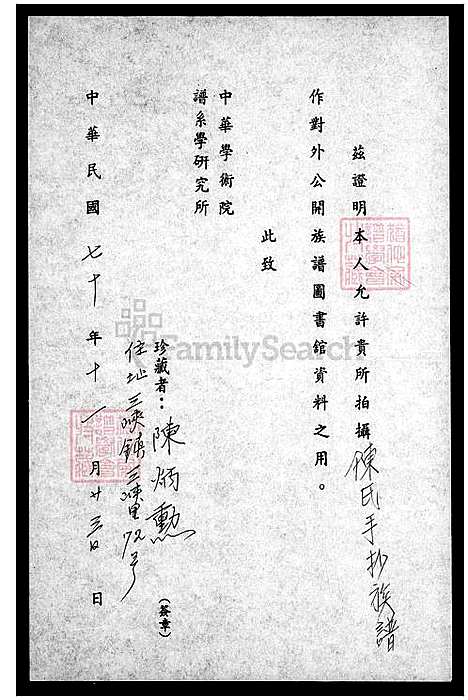 茲證明本人允許貴所拍攝陳氏手抄族譜
作對外公開族譜圖書館資料之用。
此致
中華學術院
譜系學研究所
珍藏者：陳炳勳（簽章）
住址三峽鎮三峽里72号
中華民國七十年十一月廿三日日
FamilySearch